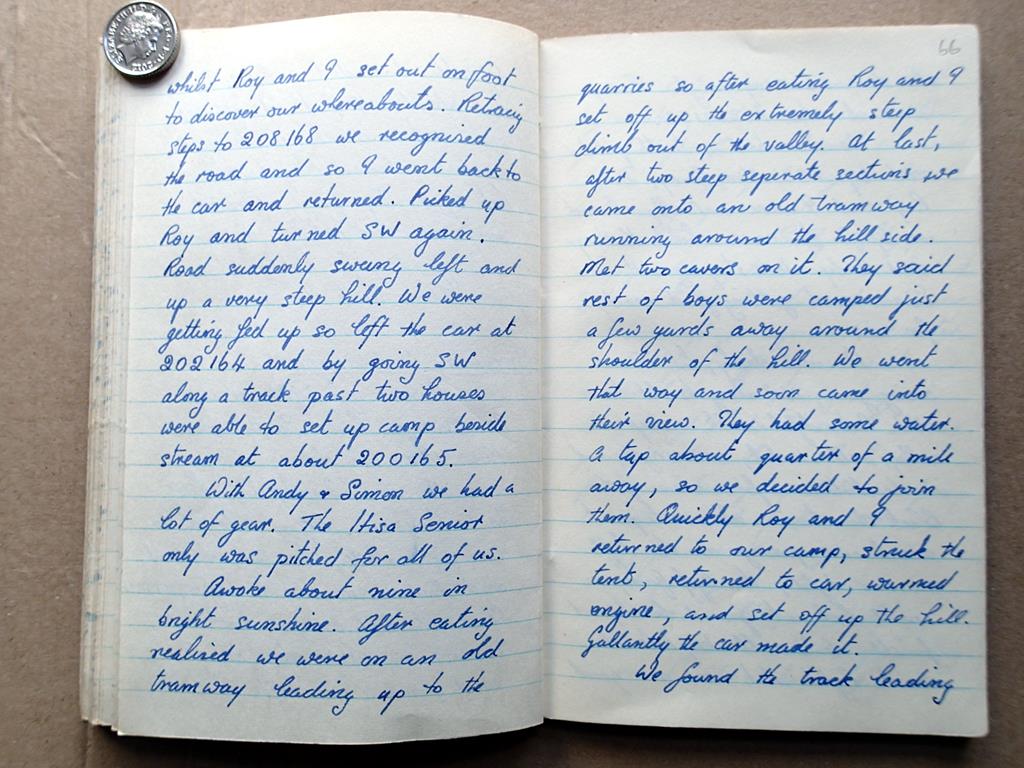 whilst Roy and I set out on foot
to discover our whereabouts. Retracing
steps to 208168 we recognized
the road and so I went back to
the car and returned. Picked up
Roy and turned SW again.
Road suddenly swung left and
up a very steep hill. We were
getting fed up so left the car at
202164 and by going SW
along a track past two houses
were able to set up camp beside
stream at about 200165.
With Andy & Simon we had a
lot of gear. The Itisa Senior
only was pitched for all of us.
Awoke about nine in
bright sunshine. After eating
realised we were on an old
tramway leading up to the
66
quarries so after eating Roy and I
set off up the extremely steep
climb out of the valley. At last,
after two steep seperate sections we
came onto an old tramway
running around the hill side.
Met two cavers on it. They said
rest of boys were camped just
a few yards away around the
shoulder of the hill. We went
that way and soon came into
their view. They had some water.
A tap about quarter of a mile
away, so we decided to join
them. Quickly Roy and I
returned to our camp, struck the
tent, returned to car, warmed
engine, and set off up the hill.
Gallantly the car made it.
We found the track leading